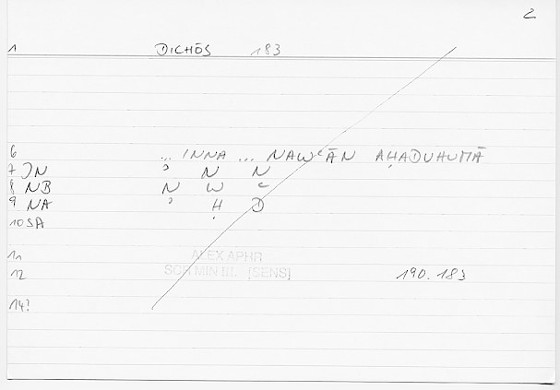 2
1 DICHŌS 183
6 ... INNA ... NAWʿĀN AḤADUHUMĀ
7 ʾN ʾ N N
8 NB N W ʿ
9 NA ʾ Ḥ D
10 SA
11 ALEX APHR
12 SOR MIN III. [SENS] 190.183
14?